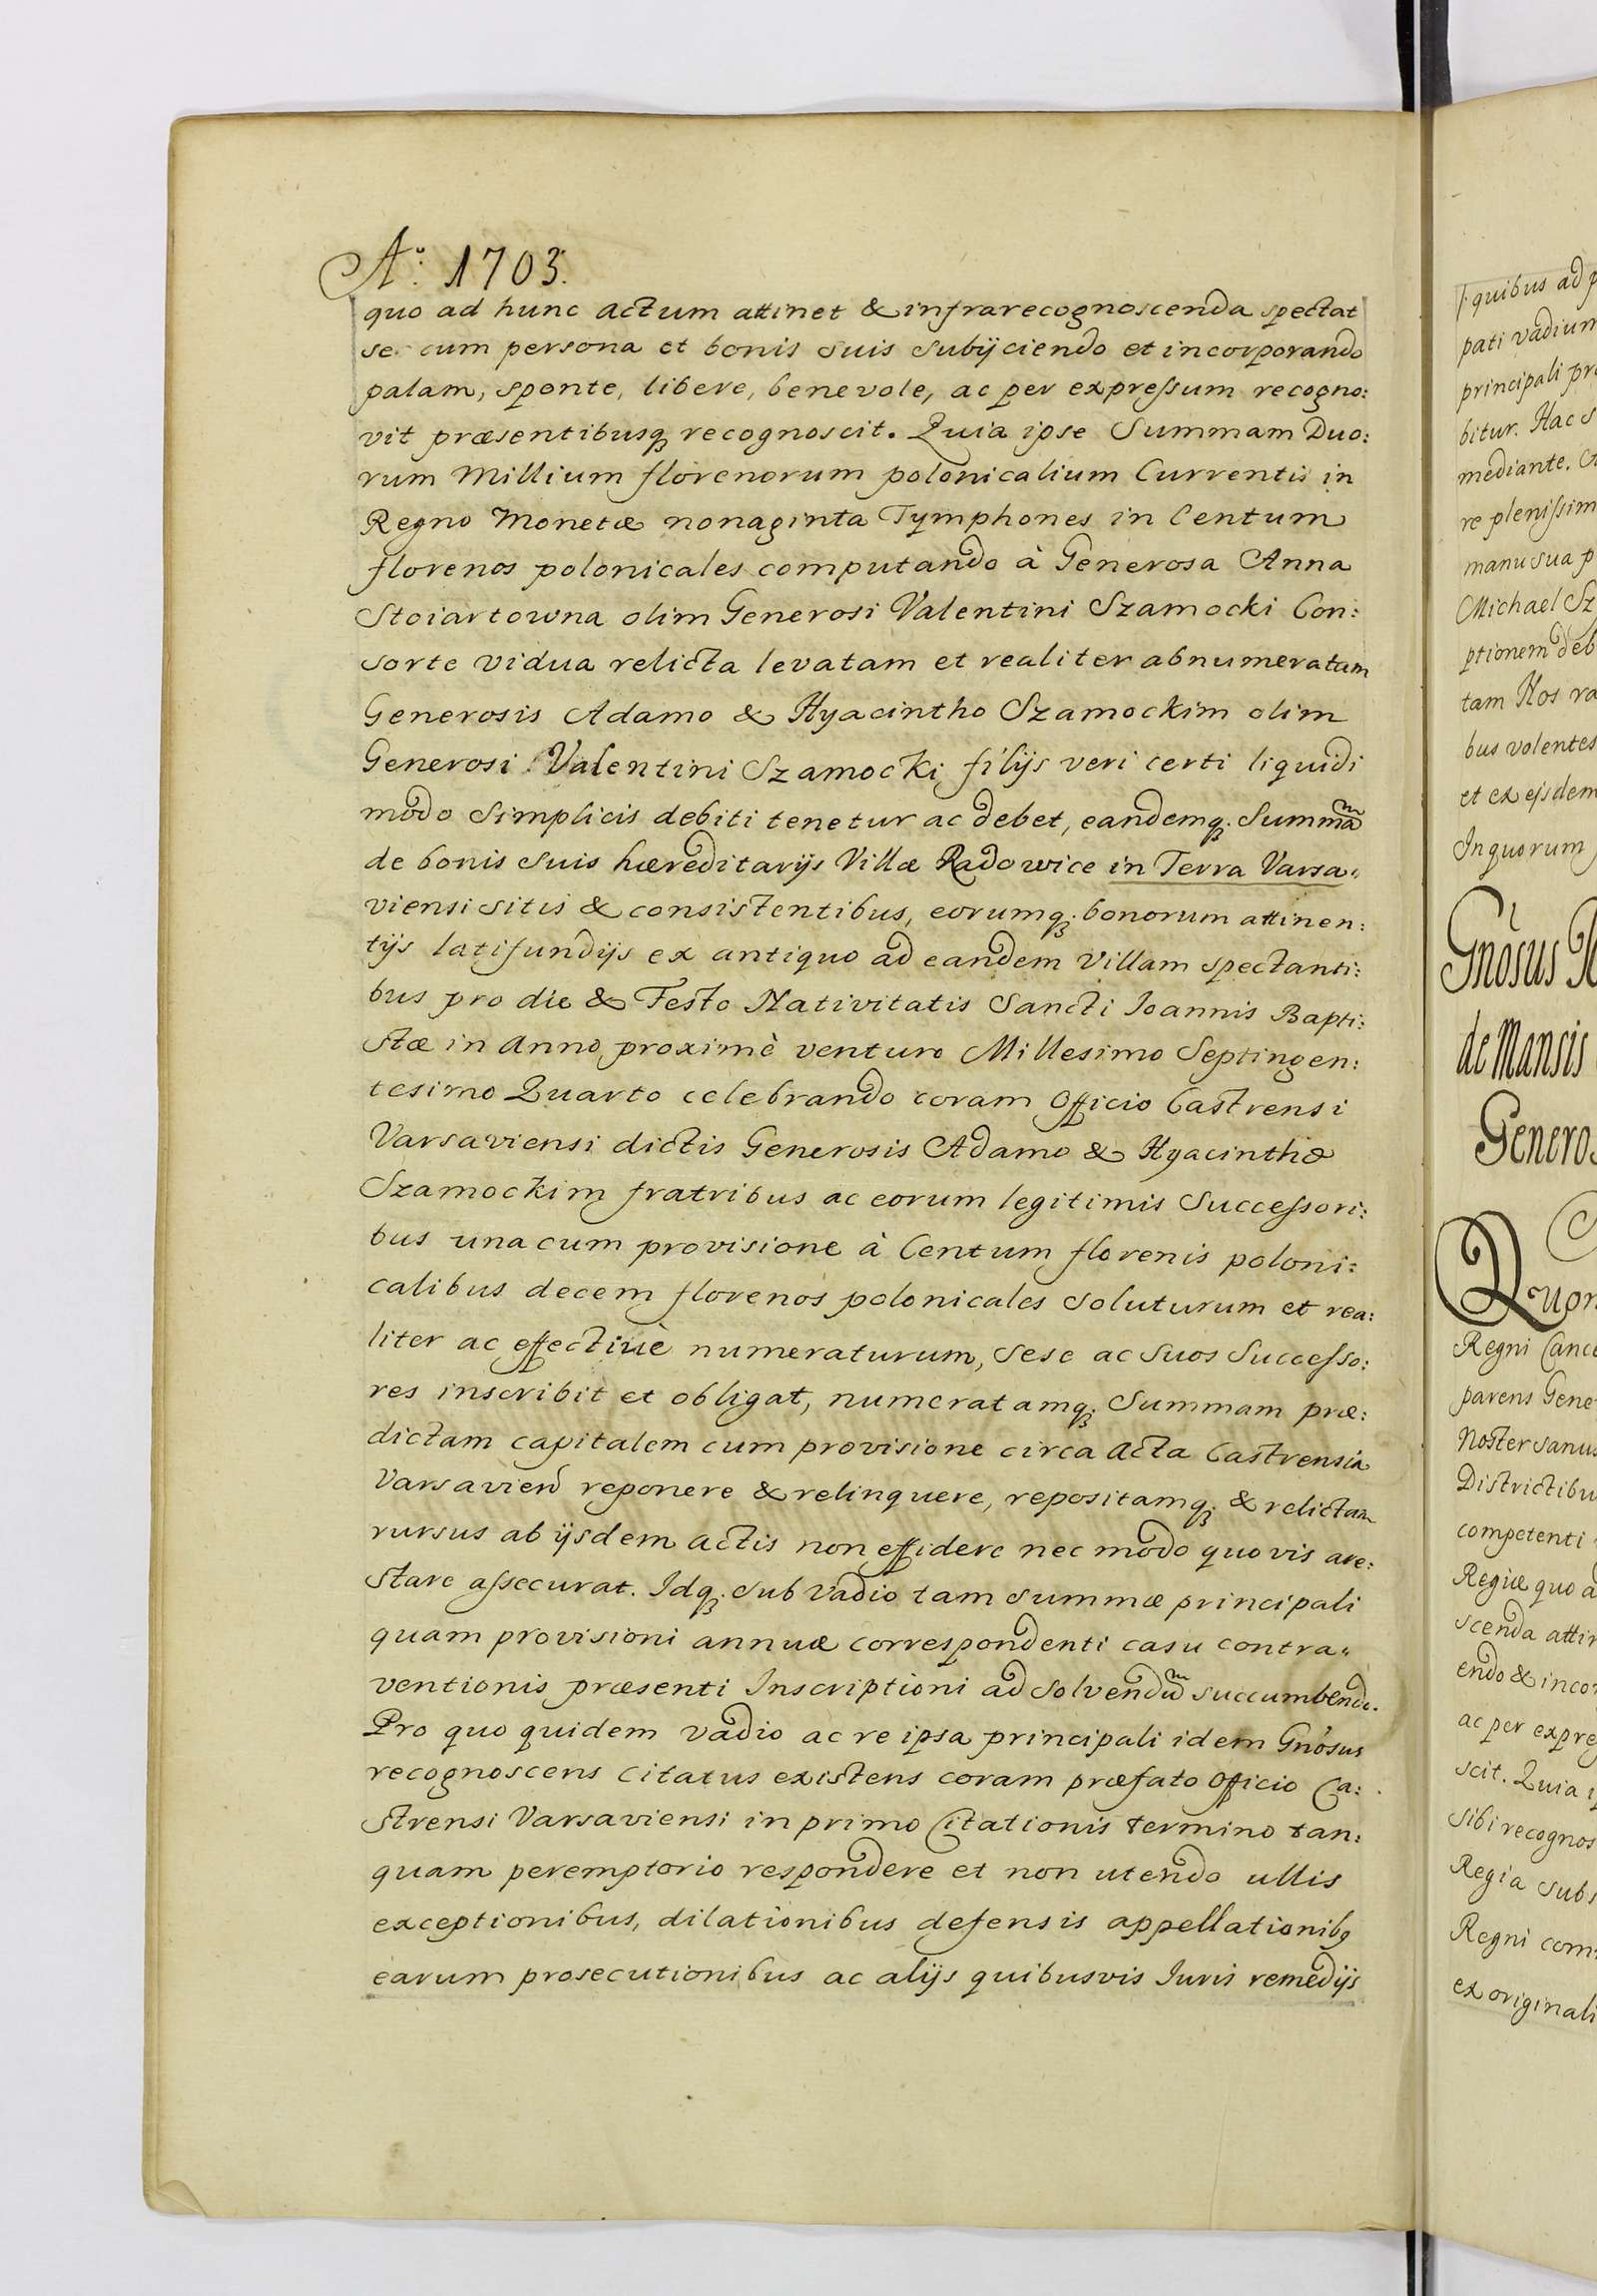 Aº: 1703.
quo ad hunc actum attinet & infrarecognoscenda spectat
se cum persona et bonis suis subijciendo et incorporando
palam, sponte, libere, benevole, ac per expressum recogno:
vit præsentibusq; recognoscit. Quia ipse Summam Duo:
rum Millium florenorum polonicalium Currentis in
Regno Monetæ nonaginta Tymphones in Centum
florenos polonicales computando à Generosa Anna
Stoiartowna olim Generosi Valentini Szamocki Con:
sorte vidua relicta levatam et realiter abnumeratam
Generosis Adamo & Hyacintho Szamockim olim
Generosi Valentini Szamocki filijs veri certi liquidi
modo simplicis debiti tenetur ac debet, eandemq; Summã
de bonis suis hæreditarijs Villæ Radowice in Terra Varsa„
viensi sitis & consistentibus, eorumq; bonorum attinen:
tijs latifundijs ex antiquo ad eandem Villam spectanti:
bus pro die & Festo Nativitatis Sancti Ioannis Bapti:
stæ in Anno proximè venturo Millesimo Septingen:
tesimo Quarto celebrando coram Officio Castrensi
Varsaviensi dictis Generosis Adamo & Hyacintho
Szamockim fratribus ac eorum legitimis Successori:
bus una cum provisione à Centum florenis poloni:
calibus decem florenos polonicales soluturum et rea:
liter ac effectivè numeraturum, sese ac suos Successo:
res inscribit et obligat, numeratamq; Summam præ:
dictam capitalem cum provisione circa Acta Castrensia
Varsavień reponere & relinquere, repositamq; & relictam
rursus ab ijsdem Actis non effidere nec modo quovis are:
stare assecurat. Idq; sub vadio tam summæ principali
quam provisioni annuæ correspondenti casu contra„
ventionis præsenti Inscriptioni ad solvendũ succumbendo.
Pro quo quidem vadio ac re ipsa principali idem Gnõsus
recognoscens citatus existens coram præfato Officio Ca:
strensi Varsaviensi in primo Citationis termino tan:
quam peremptorio respondere et non utendo ullis
exceptionibus, dilationibus defensis appellationibq
earum prosecutionibus ac alijs quibusvis Iuris remedijs
quibus ad
pati vadium
principali
bitur. Hac
mediante.
re
manu sua
Michael
tam Nos
bus volentes
et ex ejsdem
In quorum
Gnõsus
de Mansis
Regni
parens
Noster
competenti
Regiæ quo
scenda
endo &
ac per
scit. Quia
sibi
Regia
Regni
ex originali